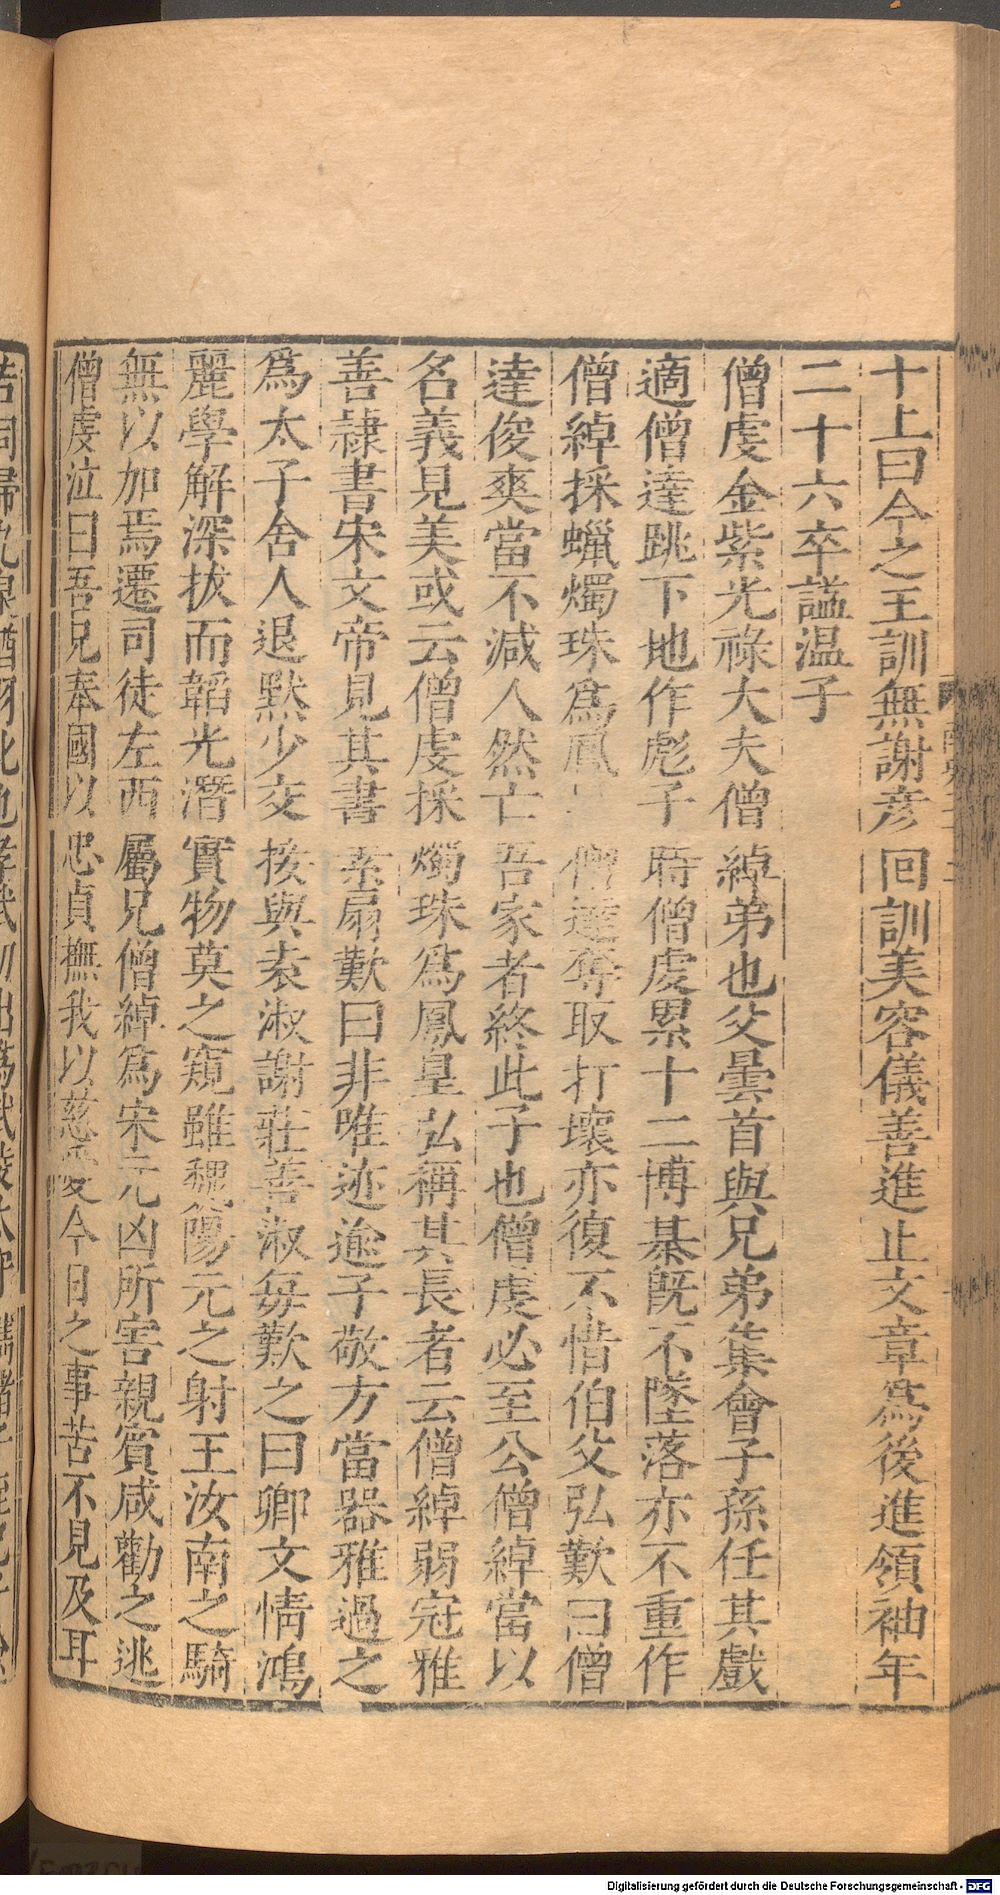 十上曰今之王訓無謝彥回訓美容儀善進止文章爲後進領袖年
二十六卒謚温子
僧虔金紫光祿大夫僧綽弟也父曇首與兄弟集會子孫任其戲
適僧達跳下地作彪子時僧虔累十二博棊旣不墜落亦不重作
僧綽採蠟燭珠爲鳳皇僧達奪取打壞亦復不惜伯父弘歎曰僧
達俊爽當不減人然亡吾家者終此子也僧虔必至公僧綽當以
名義見美或云僧虔採燭珠爲鳳皇弘稱其長者云僧綽弱冠雅
善隷書宋文帝見其書素扇歎曰非唯迹逾子敬方當器雅過之
爲太子舍人退默少交接與袁淑謝莊善淑每歎之曰卿文情鴻
麗學解深拔而韜光潛實物莫之窺雖魏陽元之射王汝南之騎
無以加焉遷司徒左西屬兄僧綽爲宋元凶所害親賓咸勸之逃
僧虔泣曰吾兄奉國以忠貞撫我以慈愛今日之事苦不見及耳
Digitalisierung gefördert durch die Deutsche Forschungsgemeinschaft - DFG